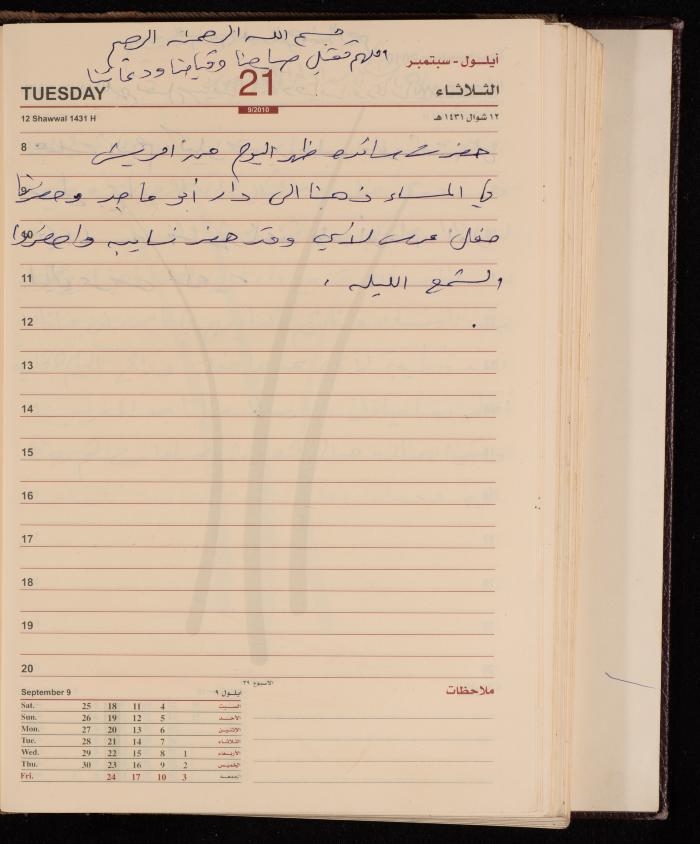 بسم الله الرحمن الرحيم
اللهم تقبل صيامنا وقيامنا ودعائنا
أيلول - سبتمبر
TUESDAY 21 الثلاثاء
9/2010
12 Shawwal 1431 H ١٢ شوال ١٤٣١ هـ
8 حضرت سائده ظهر اليوم من
في المساء ذهبنا الى دار أبو ماجد وحضرنا
10 حفل عرس لؤي وقد حضر نسايبه واحضروا
11 الشمع الليله .
12
13
14
15
16
17
18
19
20
الأسبوع ٣٩
September 9 أيلول ٩
Sat. 25 18 11 4 السبت
Sun. 26 19 12 5 الأحد
Mon. 27 20 13 6 الاثنين
Tue. 28 21 14 7 الثلاثاء
Wed. 29 22 15 8 1 الأربعاء
Thu. 30 23 16 9 2 الخميس
Fri. 24 17 10 3 الجمعة
ملاحظات